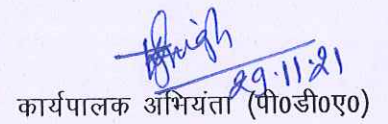 29.11.21
कार्यपालक अभियंता (पी०डी०ए०)